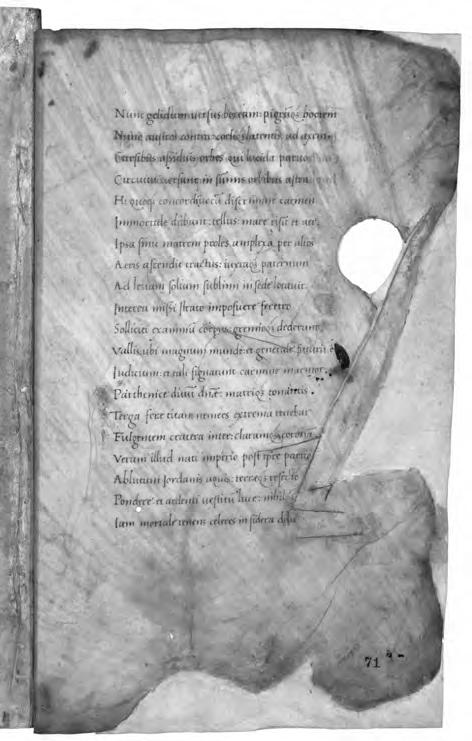 Nunc gelidum versus boream: pigrūq; booten
Nunc austros contra: cælis latentis ad axem
assiduis orbes qui lucida patruo
Circuitu versant in suīs orbibus astra
Hi quoq; concordi discrimine carmen
Immortale dabunt: tellus: mare et aer.
Ipsa sinu matrem proles amplexa per altos
Aeris ascendit tractus: iuxtaq; paternum
Ad lævam solium sublimi in sede locavit
Interea missi strato imposuere feretro
Solliciti exanimū corpus: gremioq; dederunt
Vallis: ubi magnum mundi et generale futurū
Iudicium: et tali signarunt carmine marmor.
Parthenice divū matrisq; tonantis.
Terga fere titan nemees extrema tenebat
Fulgentem cratera inter: claramq; coronā
Verum illud nati imperio post tpre parvo
Ablutum Jordanis aquis: terreq; refecto
Pondere et ardenti vestitū luce: nihilq;
Iam mortale tenens celeres in sidera
71